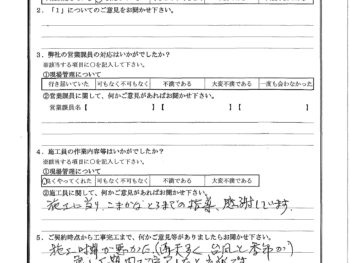 2．「1」についてのご意見をお聞かせ下さい。
3．弊社の営業課員の対応はいかがでしたか？
※該当する項目に○を記入して下さい。
①現場管理について
行き届いていた 可もなく不可もなく 不満である 大変不満である 一度も会わなかった
②営業課員に関して、何かご意見があればお聞かせ下さい。
営業課員名【 】【 】
4．施工員の作業内容等はいかがでしたか？
※該当する項目に○を記入して下さい。
①現場管理について
良くやってくれた 可もなく不可もなく 不満である 大変不満である
②施工員に関して、何かご意見があればお聞かせ下さい。
施工に当り、こまかなところまでの指導、感謝しています。
5．ご契約時点から工事完工まで、何かご意見等がありましたらお聞かせ下さい。
施工時期が悪かった（雨天多く 台風と